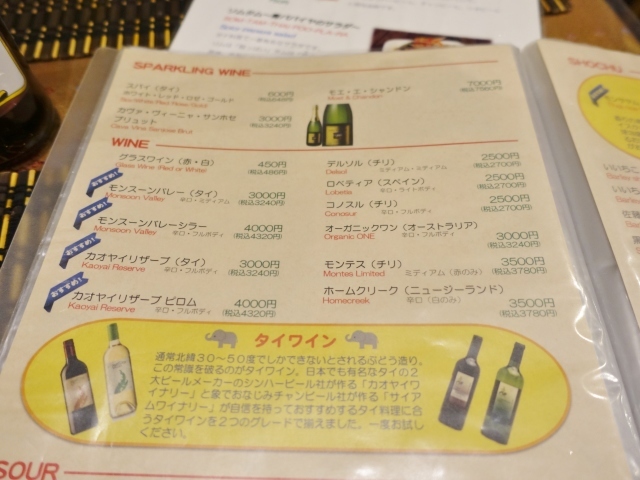 SPARKLING WINE
スパイ（タイ）
ホワイト・レッド・ロゼ・ゴールド
600円
カヴァ・ヴィーニャ・サンホセ
ブリュット
3000円
(税込3240円)
Cava Vina Sanjose Brut
モエ・エ・シャンドン
7000円
Moët & Chandon
WINE
グラスワイン（赤・白）
450円
Glass Wine (Red or White)
(税込486円)
おすすめ!
モンスーンバレー（タイ）
3000円
Monsoon Valley
辛口・ミディアム
(税込3240円)
おすすめ!
モンスーンバレーシラー
4000円
Monsoon Valley
辛口・フルボディ
(税込4320円)
おすすめ!
カオヤイリザーブ（タイ）
3000円
Kaoyai Reserve
辛口・フルボディ
(税込3240円)
おすすめ!
カオヤイリザーブ ピロム
4000円
Kaoyai Reserve
辛口・フルボディ
(税込4320円)
デルソル（チリ）
2500円
Delsol
ミディアム・ミディアム
(税込2700円)
ロベティア（スペイン）
2500円
Lobetia
辛口・ライトボディ
(税込2700円)
コノスル（チリ）
2500円
Conosur
辛口・フルボディ
(税込2700円)
オーガニックワン（オーストラリア）
Organic ONE
辛口・フルボディ
3000円
(税込3240円)
モンテス（チリ）
3500円
Montes Limited
ミディアム（赤のみ）
(税込3780円)
ホームクリーク（ニュージーランド）
Homecreek
辛口（白のみ）
3500円
(税込3780円)
タイワイン
通常北緯３０～５０度でしかできないとされるぶどう造り、
この常識を破るのがタイワイン。日本でも有名なタイの２
大ビールメーカーのシンハービール社が作る「カオヤイワ
イナリー」と象でおなじみチャンビール社が作る「サイア
ムワイナリー」が自信を持っておすすめするタイ料理に合
うタイワインを２つのグレードで揃えました。一度お試し
ください。
SOUR
SHOCHU